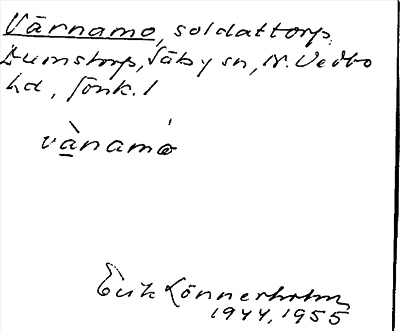 Värnamo, soldattorp,
Sumstorp, Säby sn, N. Vedbo
hd, Jönk. l
vànamó
Erik Lönnerholm
1944, 1955